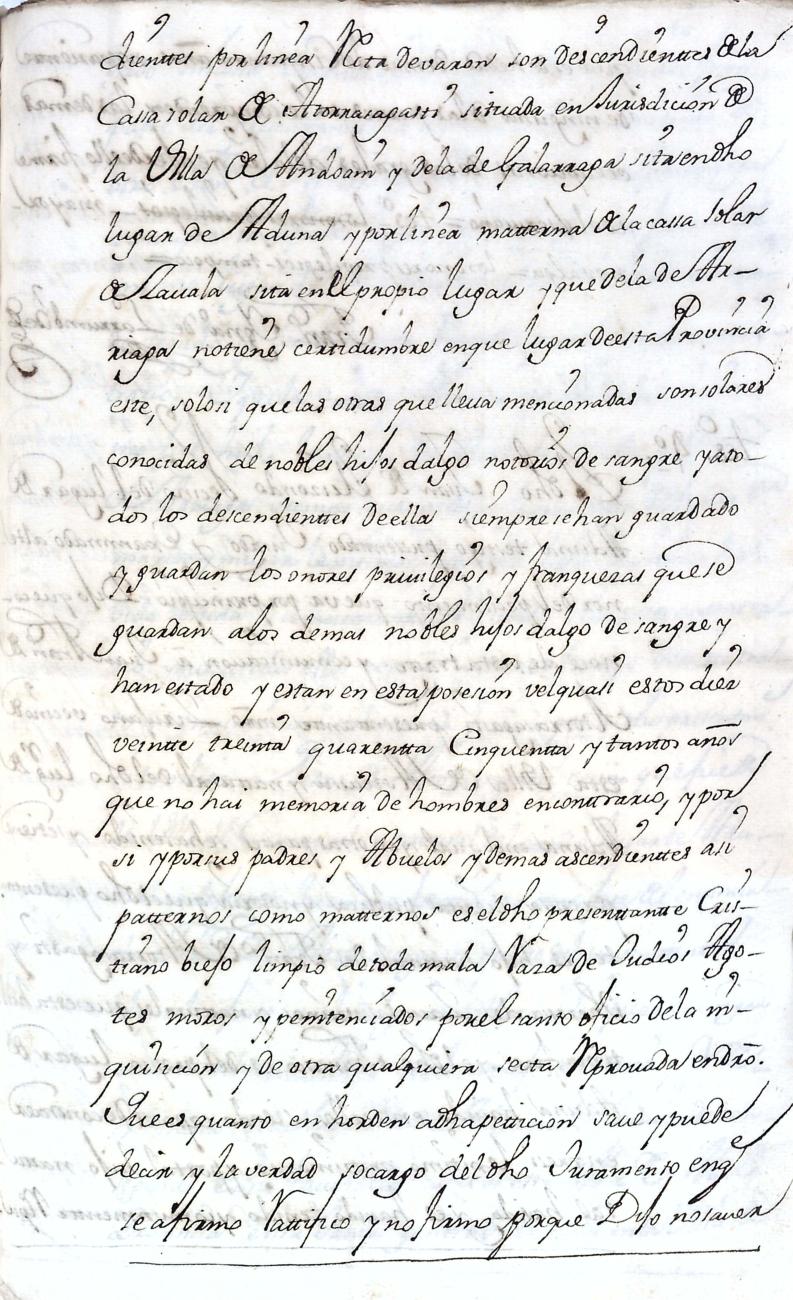 dienttes por linea Recta de varon son descendienttes de la
Cassa solar de Atorrasagasti situada en Jurisdicion de
la Villa de Andoain y de la de Galarraga sita en dho
lugar de Aduna y por linea matterna de la cassa solar
de Zauala sita en el propio lugar y que de la de Ar-
riaga no tiene certidumbre en que lugar de esta Provincia
este, solo si que las otras que lleua mencionadas son solares
conocidas de nobles hijos dalgo notorios de sangre y a to-
dos los descendienttes de ella siempre se han guardado
y guardan los onores priuilegios y franquezas que se
guardan a los demas nobles hijos dalgo de sangre y
han estado y estan en esta posesion vel quasi estos diez
veintte treinta quarentta Cinquentta y tantos años
que no hai memoria de hombres en conttrario, y por
si y por sus padres y Abuelos y demas ascendienttes asi
patternos como matternos es el dho presenttantte Cris-
tiano biejo limpio de toda mala Raza de Judios Ago-
tes moros y penitenciados por el santo oficio de la in-
quisicion y de otra qualquiera secta Reprouada en dro.
Que es quanto en horden a dha petticion saue y puede
decir y la verdad so cargo del dho Juramento en q̃
se afirmo Rattifico y no firmo porque Dijo no sauer